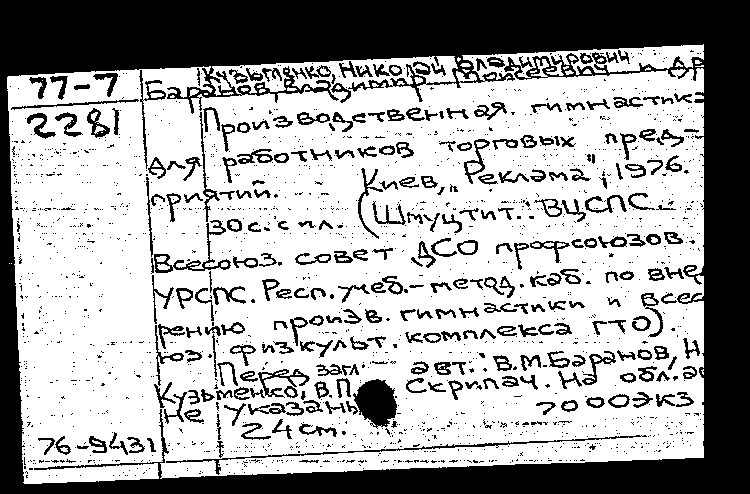 77-7
2281
Кузьменко, Николай Владимирович
Баранов, Владимир Моисеевич и др
Производственная гимнастика
для работников торговых пред-
приятий. Киев, „Реклама", 1976.
30 с. с ил. (Шмуцтит.: ВЦСПС.
Всесоюз. совет ДСО профсоюзов.
УРСПС. Респ. учеб.-метод. каб. по вне
рению произв. гимнастики и всес
юз. физкульт. комплекса ГТО).
Перед заг. авт.: В.М. Баранов, Н.
Кузьменко, В.П. Скрипач. На обл. а
не указаны
24 см. 7000 экз.
76-9431